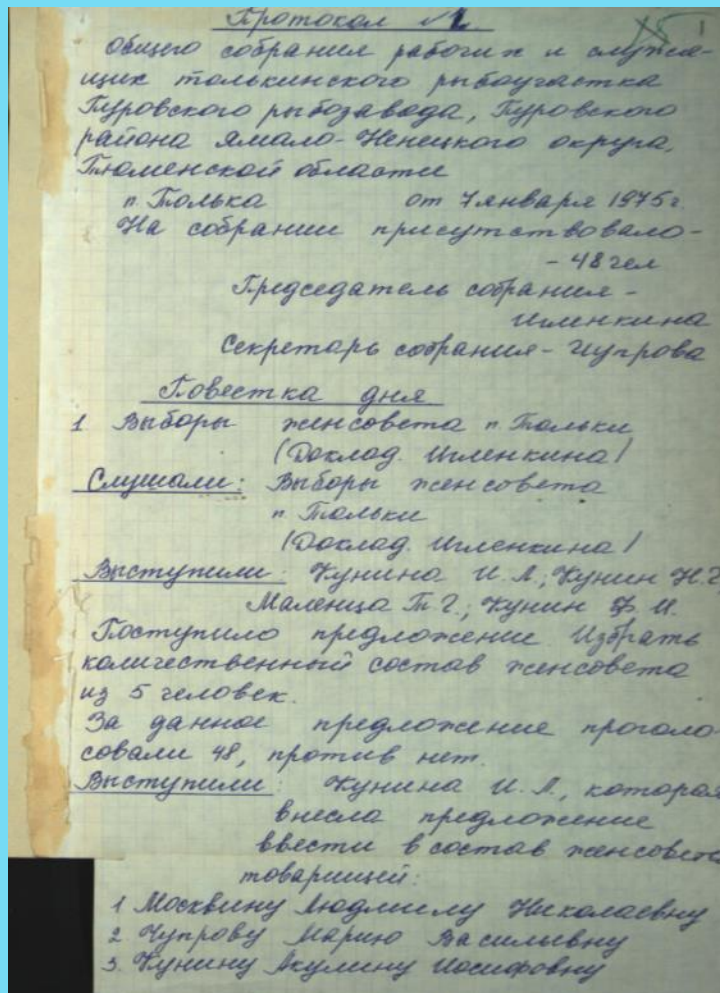 Протокол №1
1
общего собрания рабочих и служа-
щих толькинского рыбоучастка
Пуровского рыбозавода, Пуровского
района Ямало-Ненецкого округа,
Тюменской области
п. Толька от 7 января 1975 г.
На собрании присутствовало-
- 48 чел
Председатель собрания -
Игленкина
Секретарь собрания - Чупрова
Повестка дня
1 Выборы женсовета п. Тольки
(Доклад. Игленкина)
Слушали: Выборы женсовета
п Тольки
(Доклад. Игленкина)
Выступили: Кунина И. Л.; Кунин Н. Г
Т. Г.; Кунин Ф. И.
Поступило предложение. Избрать
количественный состав женсовета
из 5 человек.
За данное предложение проголо-
совали 48, против нет.
Выступили: Кунина И. Л., которая
внесла предложение
ввести в состав женсовета
товарищей:
1 Москвину Людмилу Николаевну
2 Чупрову Марию Васильевну
3. Кунину Акулину Иосифовну